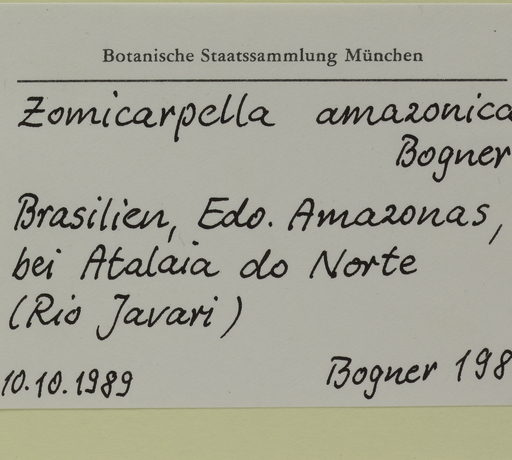 Botanische Staatssammlung München
Zomicarpella amazonica
Bogner
Brasilien, Edo. Amazonas,
bei Atalaia do Norte
(Rio Javari)
10.10.1989 Bogner 198